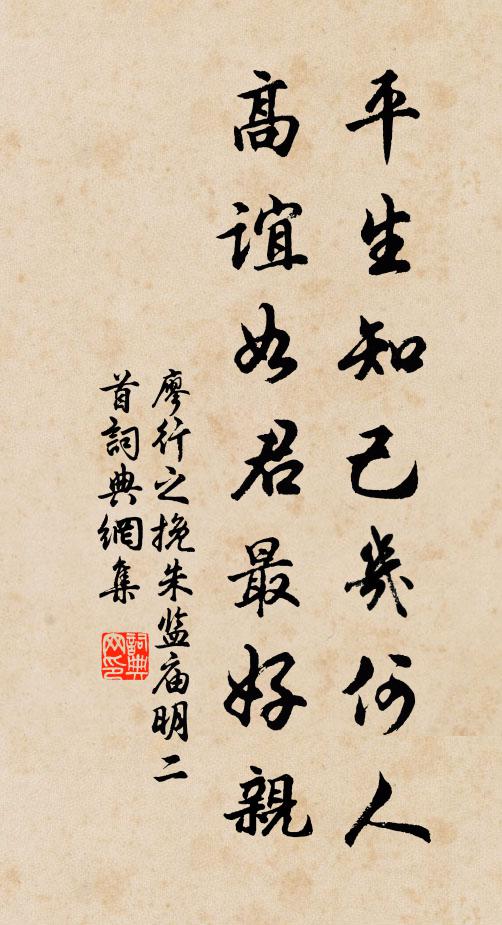 平生知己幾何人
高誼如君最好親
廖行之挽朱监庙明二
首詞典網集
詞典
网印